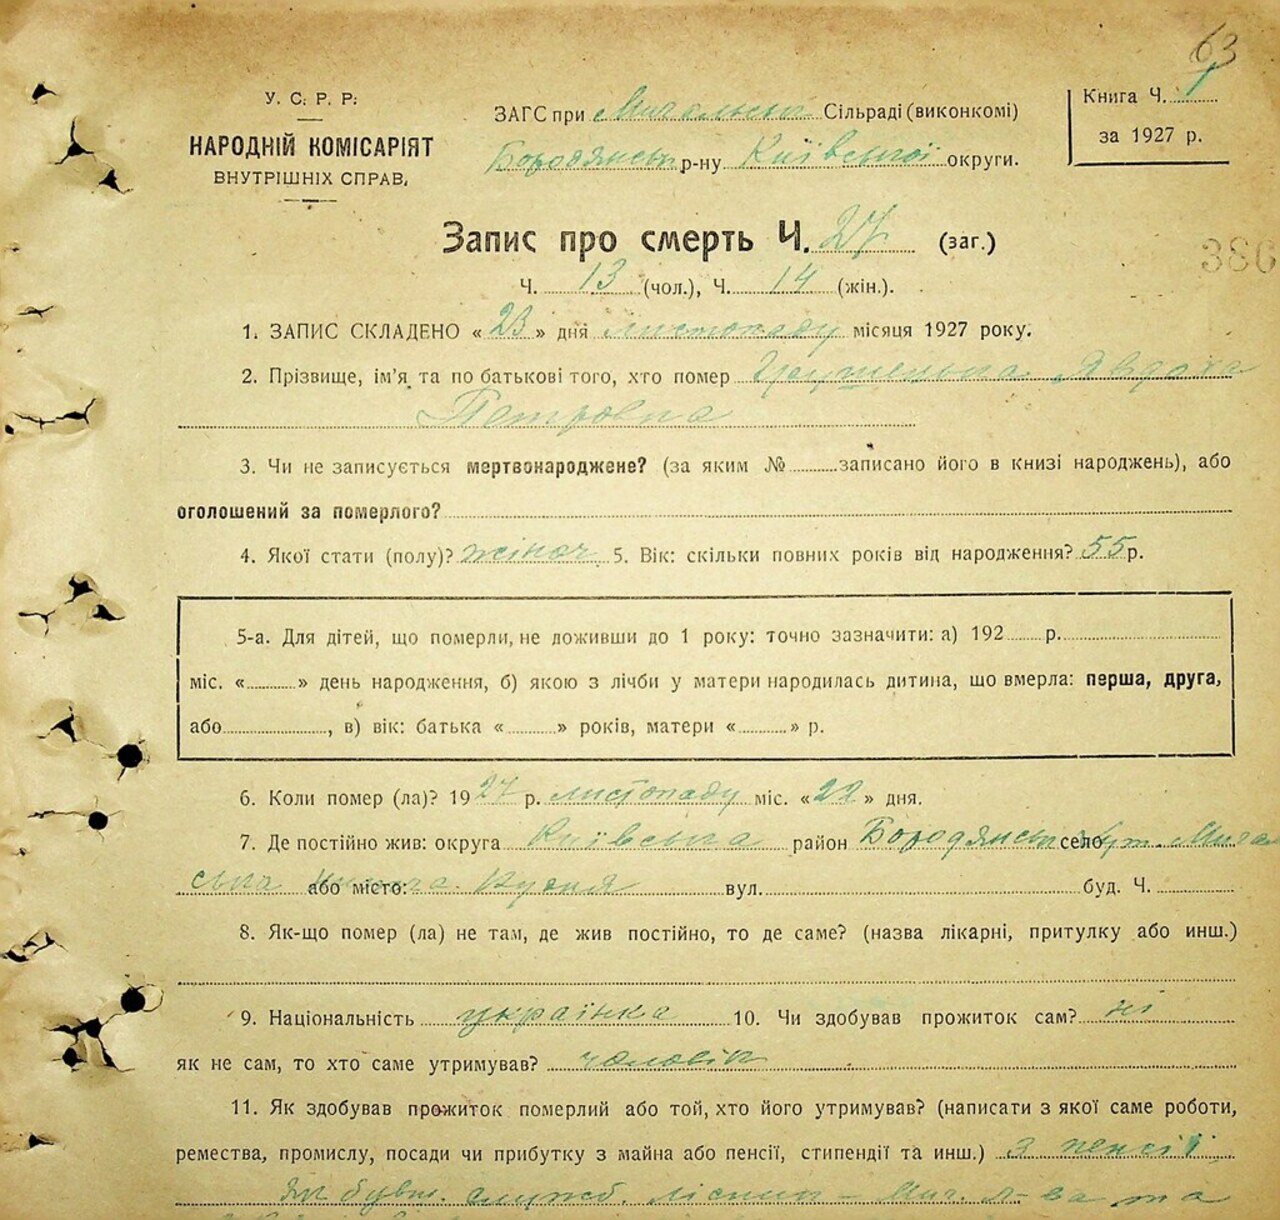 63
У. С. Р. Р.
НАРОДНІЙ КОМІСАРІЯТ
ВНУТРІШНІХ СПРАВ.
ЗАГС при Мигальськ Сільраді (виконкомі)
Бородянськ р-ну Київської округи.
Книга Ч. 1
за 1927 р.
Запис про смерть Ч. 27 (заг.)
386
Ч. 13 (чол.), Ч. 14 (жін.).
1. ЗАПИС СКЛАДЕНО « 23 » дня листопаду місяця 1927 року.
2. Прізвище, ім'я та по батькові того, хто помер Явдоха
Петровна
3. Чи не записується мертвонароджене? (за яким № записано його в книзі народжень), або
оголошений за померлого?
4. Якої стати (полу)? жіноч. 5. Вік: скільки повних років від народження? 55 р.
5-а. Для дітей, що померли, не доживши до 1 року: точно зазначити: а) 192 р.
міс. « » день народження, б) якою з лічби у матери народилась дитина, що вмерла: перша, друга,
або , в) вік: батька « » років, матери « » р.
6. Коли помер (ла)? 19 27 р. листопаду міс. « 22 » дня.
7. Де постійно жив: округа Київська район Бородянськ село
або місто: вул. буд. Ч.
8. Як-що помер (ла) не там, де жив постійно, то де саме? (назва лікарні, притулку або инш.)
9. Національність українка 10. Чи здобував прожиток сам? ні
як не сам, то хто саме утримував? чоловік
11. Як здобував прожиток померлий або той, хто його утримував? (написати з якої саме роботи,
ремества, промислу, посади чи прибутку з майна або пенсії, стипендії та инш.) з пенсії
як бувш. служб. лісник та